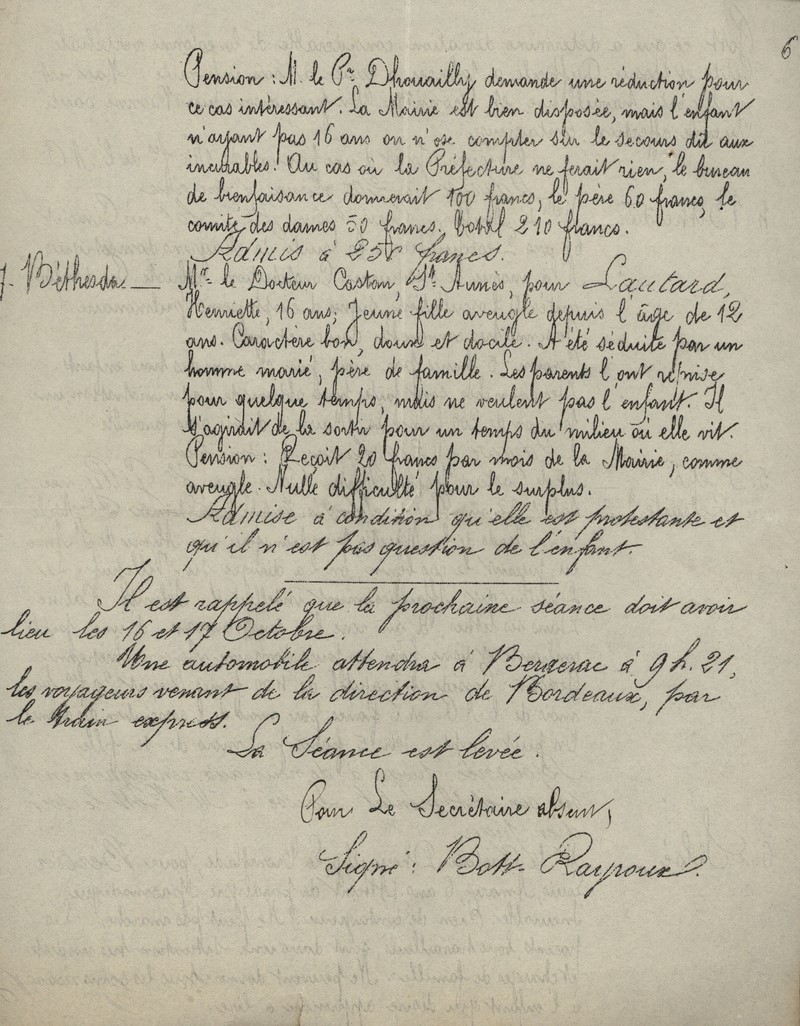 6
Pension : M. le Pr Dhouailly demande une réduction pour
ce cas intéressant. La Mairie est bien disposée, mais l'enfant
n'ayant pas 16 ans on n'ose compter sur le secours dû aux
incurables. Au cas où la Préfecture ne ferait rien, le bureau
de bienfaisance donnerait 100 francs, le père 60 francs, le
comité des dames 50 francs. total 210 francs.
Admis à 250 francs.
7- Béthesda — Mr le Docteur Castan, St Aunès, pour Lautard,
Henriette, 16 ans; Jeune fille aveugle depuis l'âge de 12
ans. Caractère bon, doux et docile. A été séduite par un
homme marié, père de famille. Les parents l'ont reprise
pour quelque temps, mais ne veulent pas l'enfant. Il
s'agirait de la sortir pour un temps du milieu où elle vit.
Pension : Reçoit 20 francs par mois de la Mairie, comme
aveugle. Nulle difficulté pour le surplus.
Admise à condition qu'elle est protestante et
qu'il n'est pas question de l'enfant.
Il est rappelé que la prochaine séance doit avoir
lieu les 16 et 17 Octobre.
Une automobile attendra à Bergerac à 9 h. 21,
les voyageurs venant de la direction de Bordeaux, par
le train express.
La Séance est levée.
Pour Le Secrétaire absent,
Signé : Bott- Rayroux.